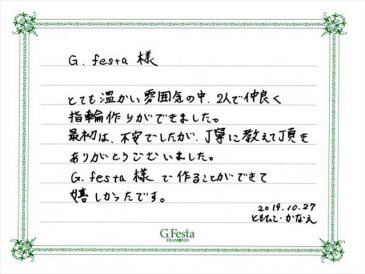 G. festa 様
とても温かい雰囲気の中、2人で仲良く
指輪作りができました。
最初は、不安でしたが、丁寧に教えて頂き
ありがとうございました。
G. festa 様 で作ることができて
嬉しかったです。
2019.10.27
ともひこ・かなえ
G.Festa
DIAMOND